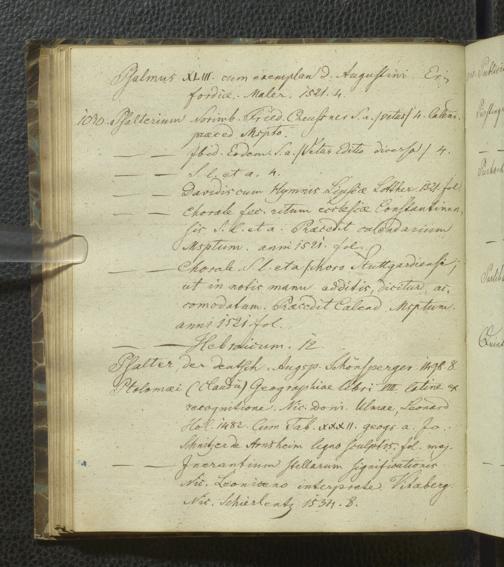 Psalmus XLIII. cum exemplari D. Augustini Er-
fordiae. Maler. 1521. 4.
Psalterium Norimb. Fried. Creussner S. a. /vetus/ 4. Calen.
praeced Mspto.
— — Ibid. Eodem S. a. /Vetus Editio diversa/ 4.
— — S. l. et a. 4.
— — Davidis cum Hymnis Lipsiae Lotther 1521. fol
— — Chorale sec. ritum ecclesiae Constantinen-
sis. S. l. et a. Praecedit calendarium
Msptum. anni 1521. fol.
— — Chorale S. l. et a /choro Stuttgardiensi,
ut in notis manu additis, dicitur, ac
comodatum. Praecedit Calend Msptum.
anni 1521. fol.
— — Hebraicum. 12
Psalter, der deutsch. Augsp. Schönsperger 1498. 8.
Ptolomaei (Claudii) Geographiae libri VIII latine ex
recognitione Nic. Donis. Ulmae, Leonard
Holl. 1482. Cum Tab. XXXII. geogr. a Jo.
Schnitzer de Arnsheim ligno sculptis. fol. maj.
— — Inerrantium stellarum significationes
Nic. Leoniceno interprete. Viteberg.
Nic. Schirlentz 1534. 8.